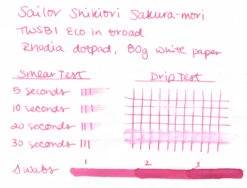 Sailor Shikiori Sakura-mori
TWSBI Eco in broad
Rhodia dotpad, 80g white paper
Smear Test
Drip Test
5 seconds
10 seconds
20 seconds
30 seconds
Swabs
1
2
3